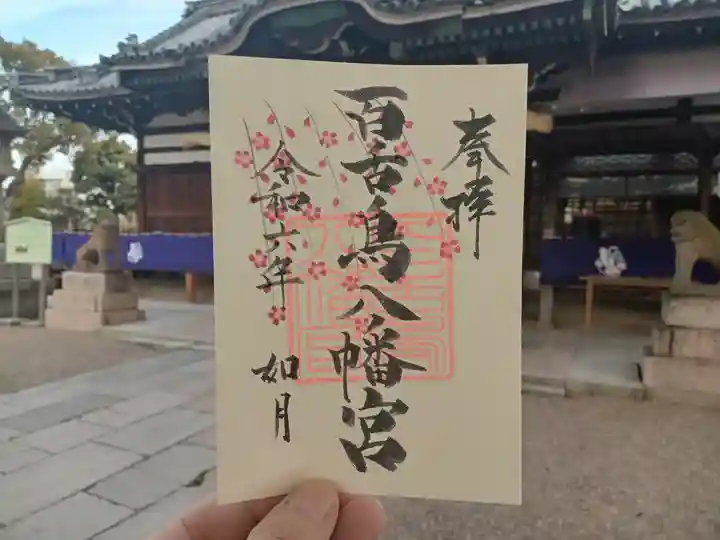 奉拝
百舌鳥八幡宮
令和六年
如月